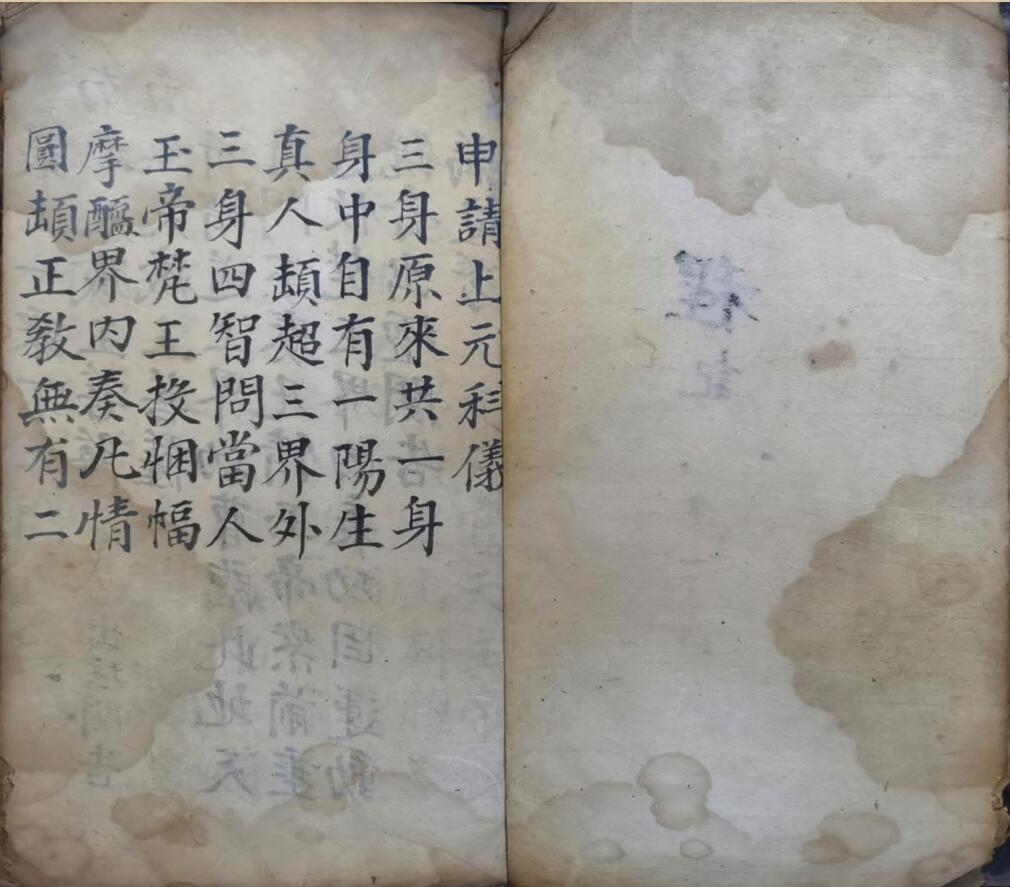 申請上元科儀
三身原來共一身
身中自有一陽生
真人頓超三界外
三身四智問當人
玉帝梵王投悃幅
摩醯界内奏凡情
圓頓正教無有二